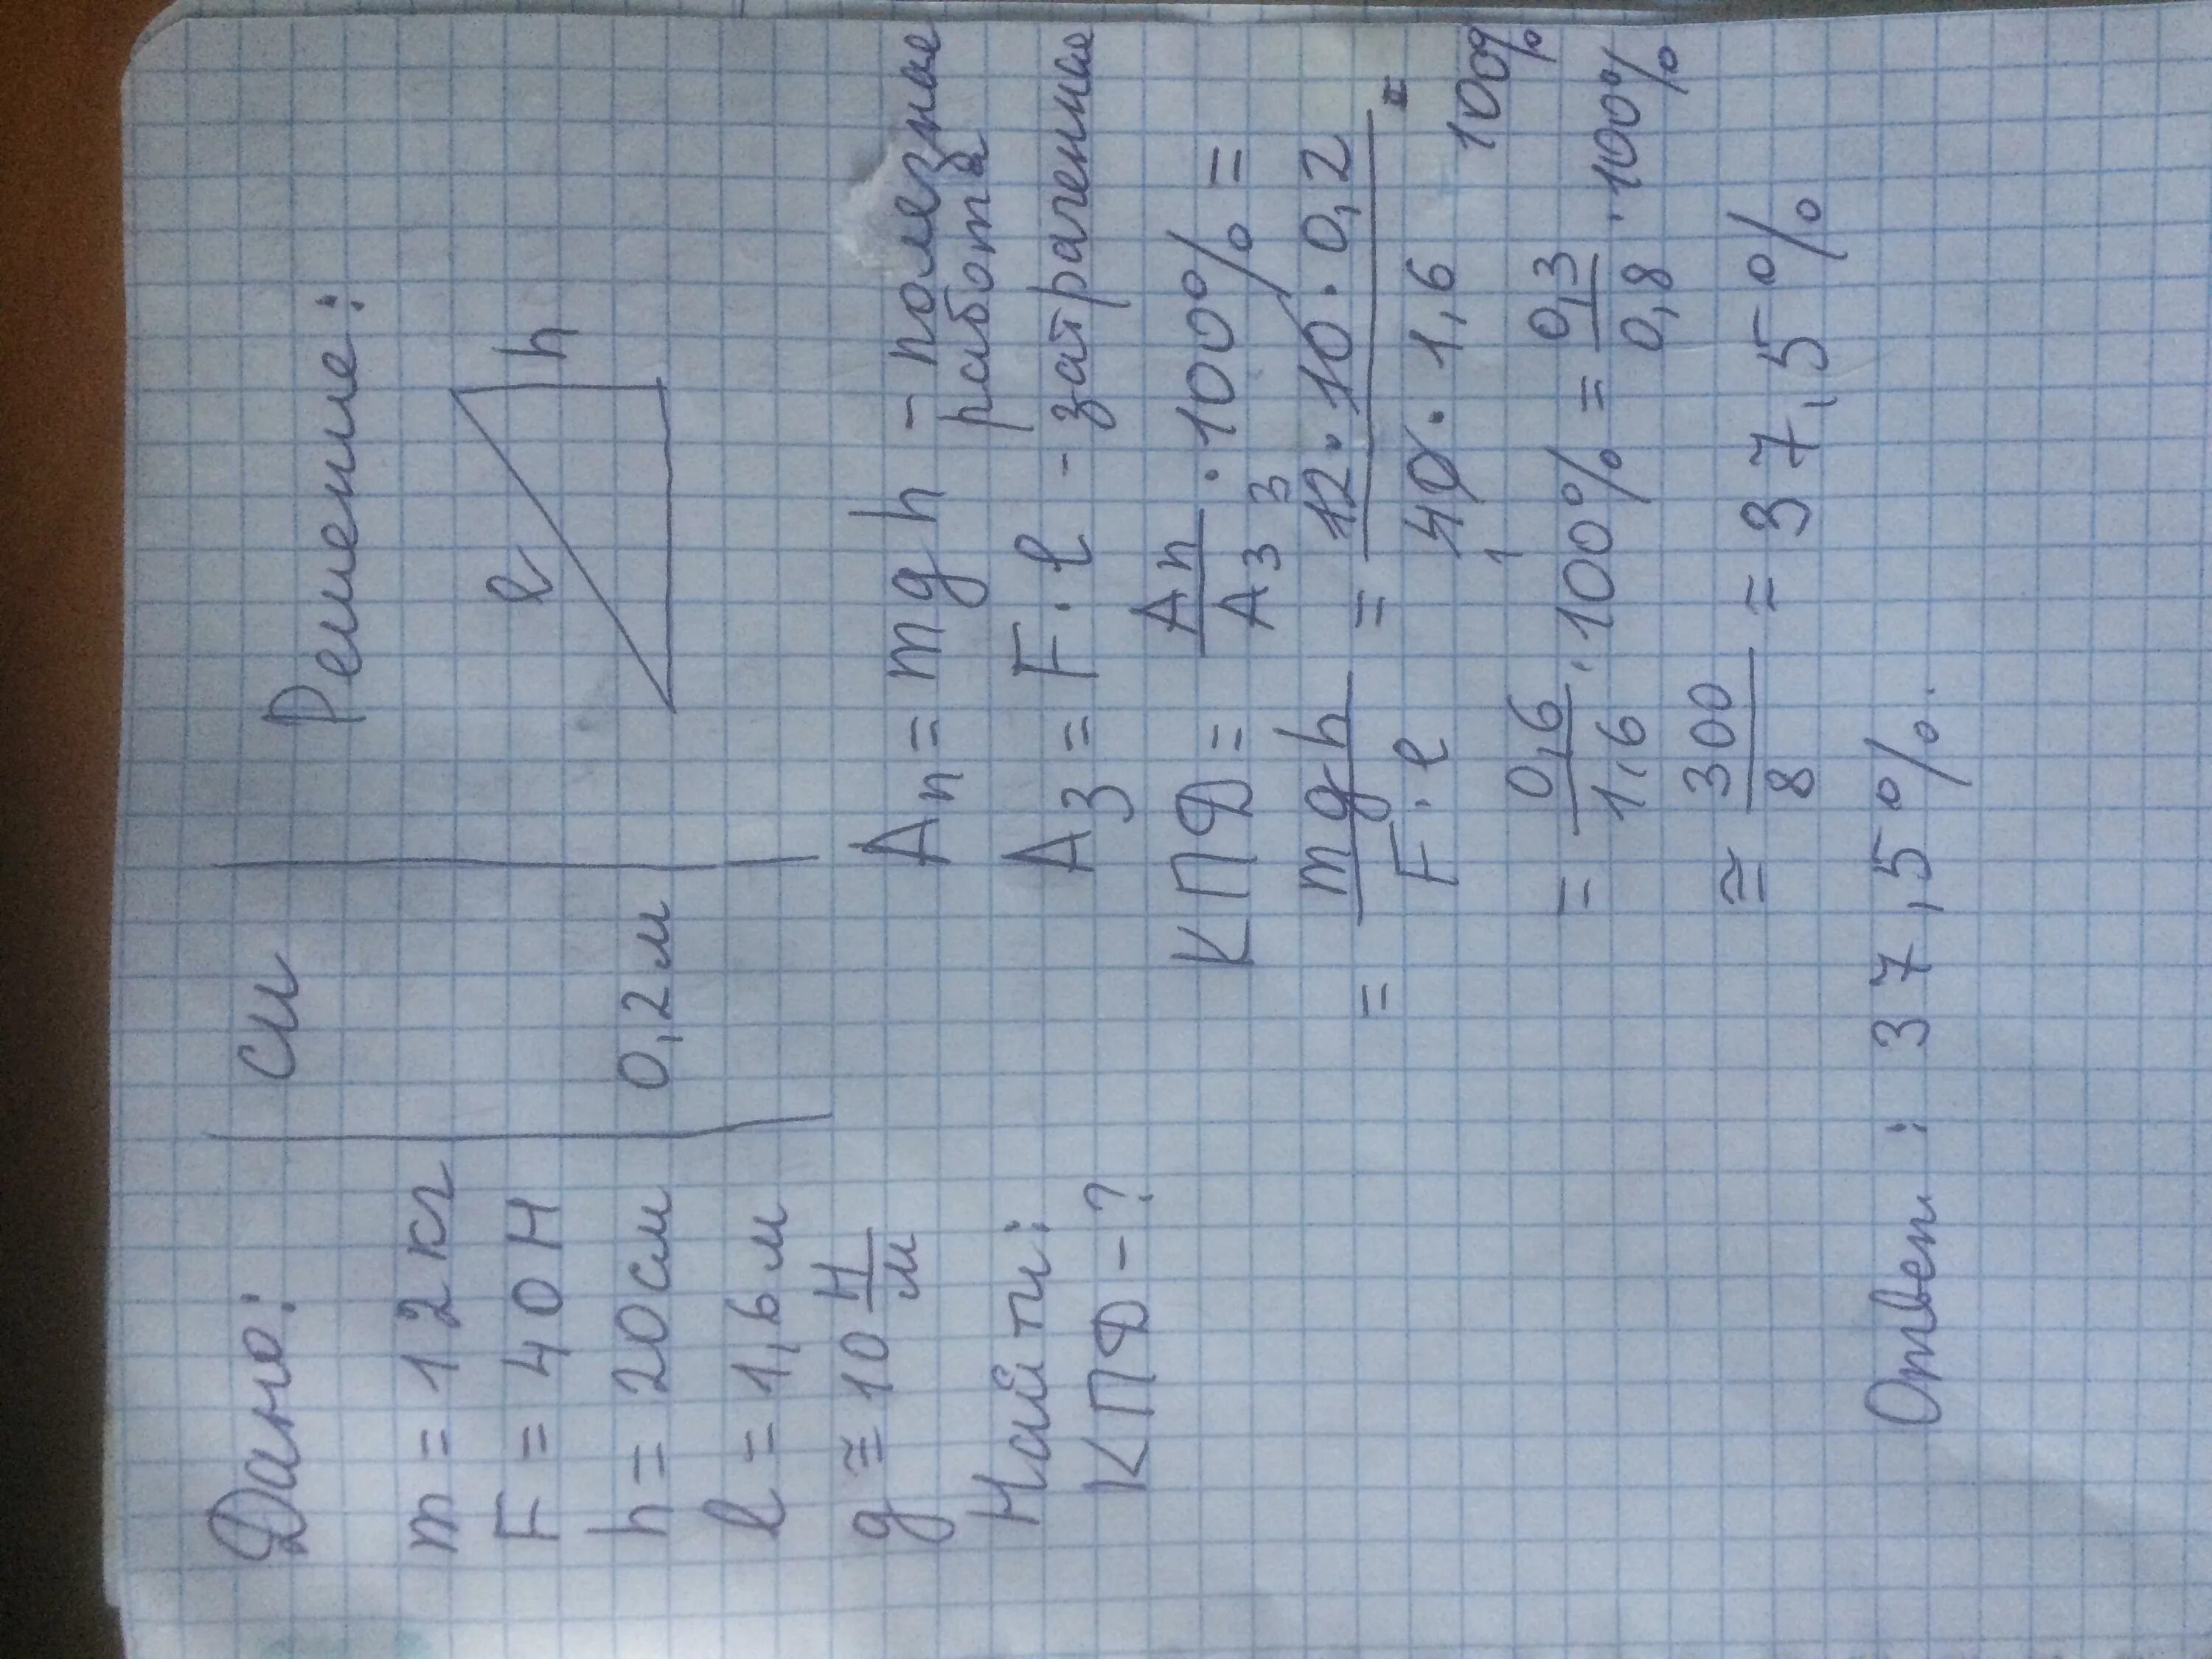 Дано:
m = 12 кг
F = 40 Н
h = 20 см
l = 1,6 м
g ≃ 10 Н/м
Найти:
КПД - ?
СИ
0,2 м
Решение:
l
h
Aп = mgh - полезная
работа
Aз = F · l - затраченная
КПД = Aп/Aз · 100% =
= mgh/F · l = 12 · 10 · 0,2/40 · 1,6 =
3
1
100%
= 0,6/1,6 · 100% = 0,3/0,8 · 100%
≃ 300/8 = 37,5%
Ответ: 37,5%.